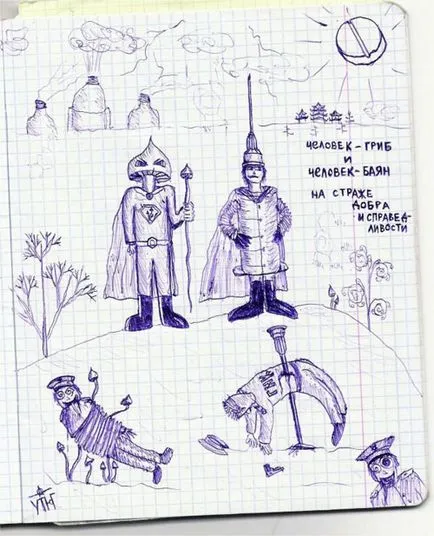 ЧЕЛОВЕК-ГРИБ
И
ЧЕЛОВЕК-БАЯН
НА СТРАЖЕ
ДОБРА
И СПРАВЕД-
ЛИВОСТИ